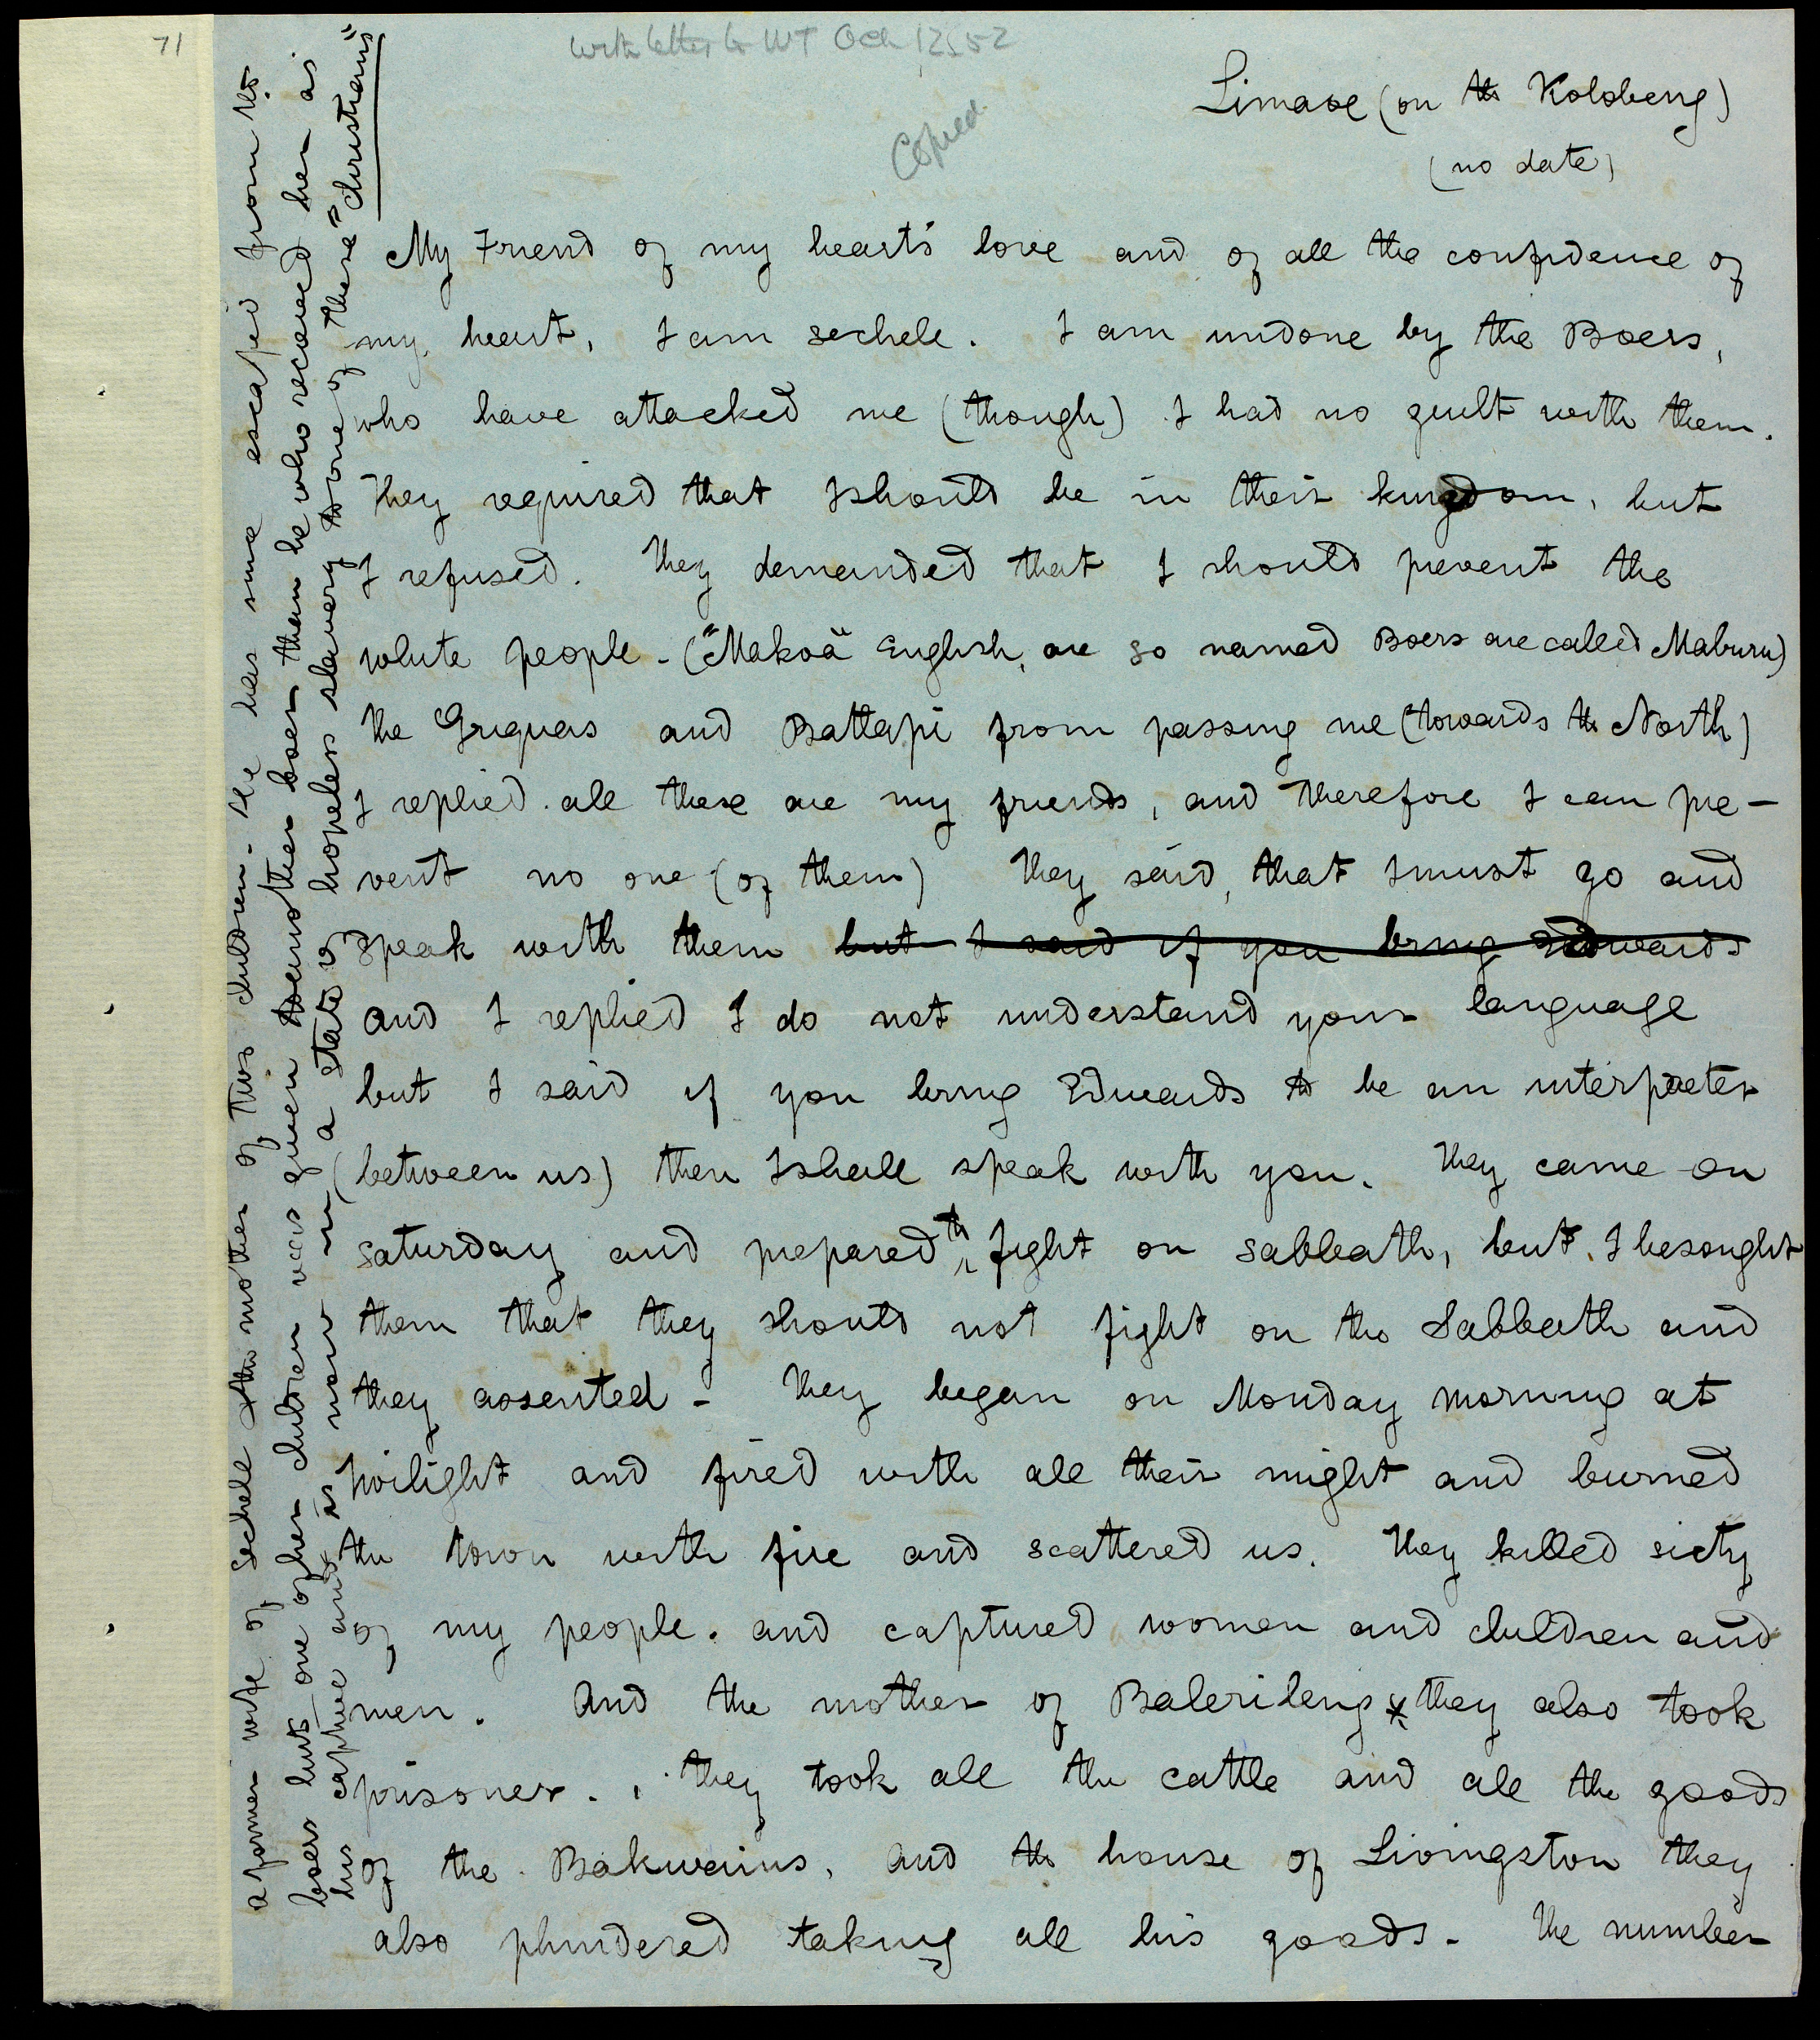 71
with letter to WT Oct 12, 52
Copied
Limaoe (on the Kolobeng)
(no date)
My Friend of my heart's love and of all the confidence of
my heart, I am sechele. I am undone by the Boers,
who have attacked me (though) I had no guilt with them.
They required that I should be in their kingdom, but
I refused. They demanded that I should prevent the
white people - ("Makoa" English, are so named Boers are called Maburu)
the Griquas and Batlapi from passing me (towards the North)
I replied. all these are my friends, and therefore I can pre-
vent no one (of them) They said, that I must go and
speak with them but I said if you bring Edwards
and I replied I do not understand your language
but I said if you bring Edwards to be an interpreter
(between us) then I shall speak with you. They came on
Saturday and prepared to fight on sabbath, but I besought
them that they should not fight on the Sabbath and
they assented - They began on Monday morning at
twilight and fired with all their might and burned
the town with fire and scattered us. They killed sixty
of my people. and captured women and children and
men. And the mother of Balerileng * they also took
prisoner. they took all the cattle and all the goods
of the Bakwains, and the house of Livingston they
also plundered taking all his goods. The number
a former wife of Sechele & the mother of two children - she has since escaped from the
boers but one of her children was given to another boer than he who received her as
his captive and is now in a state of hopeless slavery to one of these "christians"